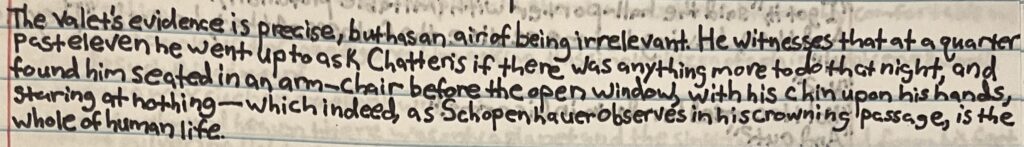 The valet's evidence is precise, but has an air of being irrelevant. He witnesses that at a quarter
past eleven he went up to ask Chatteris if there was anything more to do that night, and
found him seated in an arm-chair before the open window, with his chin upon his hands,
staring at nothing—which indeed, as Schopenhauer observes in his crowning passage, is the
whole of human life.